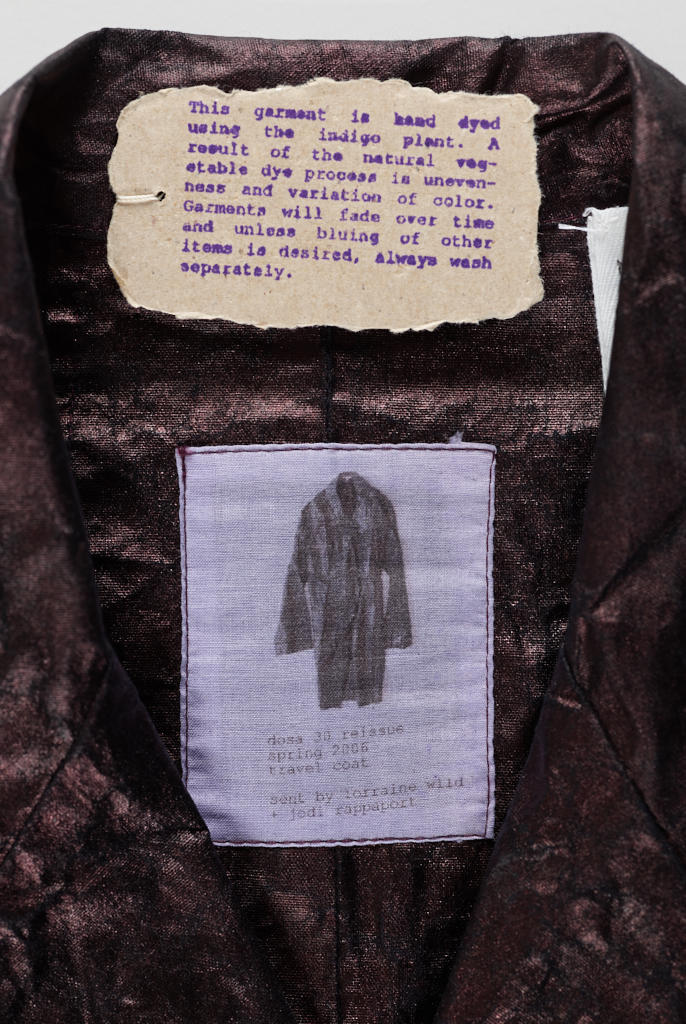 This garment is hand dyed
using the indigo plant. A
result of the natural veg-
etable dye process is uneven-
ness and variation of color.
Garments will fade over time
and unless bluing of other
items is desired, always wash
separately.
dosa 30 reissue
spring 2006
travel coat
sent by lorraine wild
+ jodi rappaport